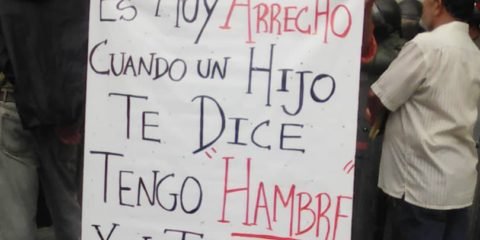 ES MUY ARRECHO
CUANDO UN HIJO
TE DICE
TENGO "HAMBRE"